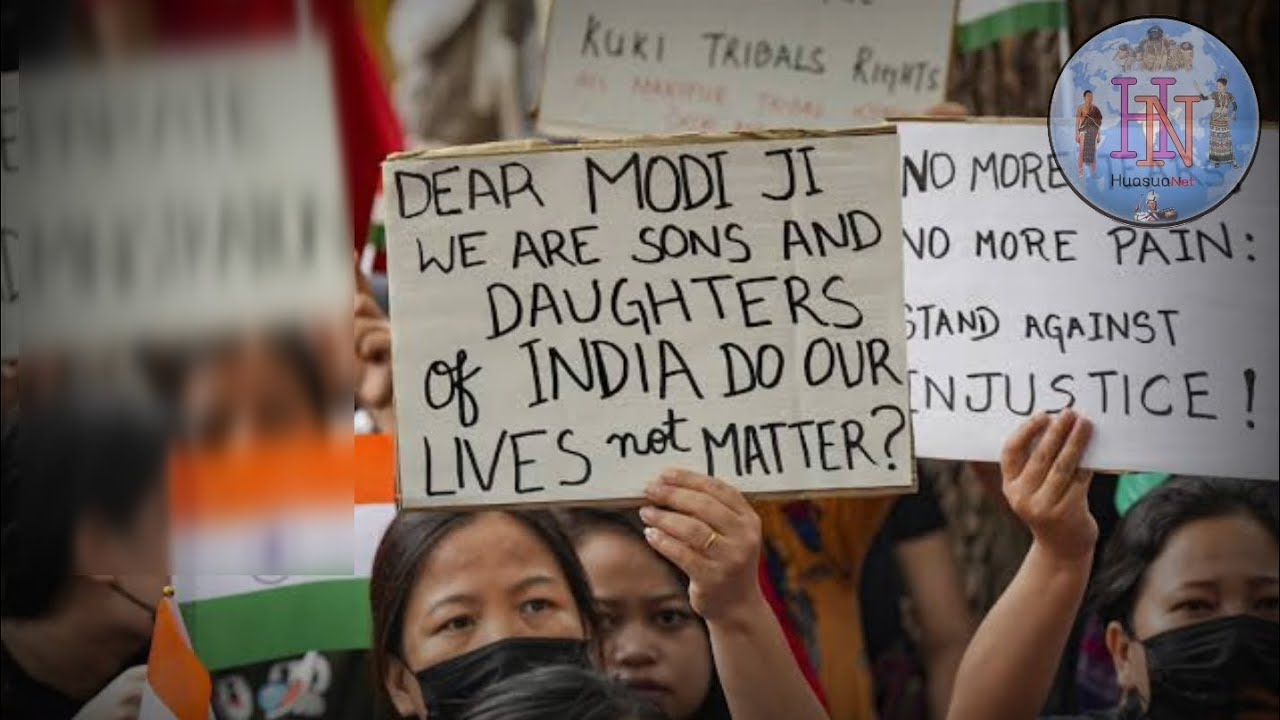 KUKI TRIBALS RIGHTS
DEAR MODI JI
WE ARE SONS AND
DAUGHTERS
of INDIA DO OUR
LIVES not MATTER?
NO MORE
NO MORE PAIN:
STAND AGAINST
INJUSTICE!
HN
HuasuaNet